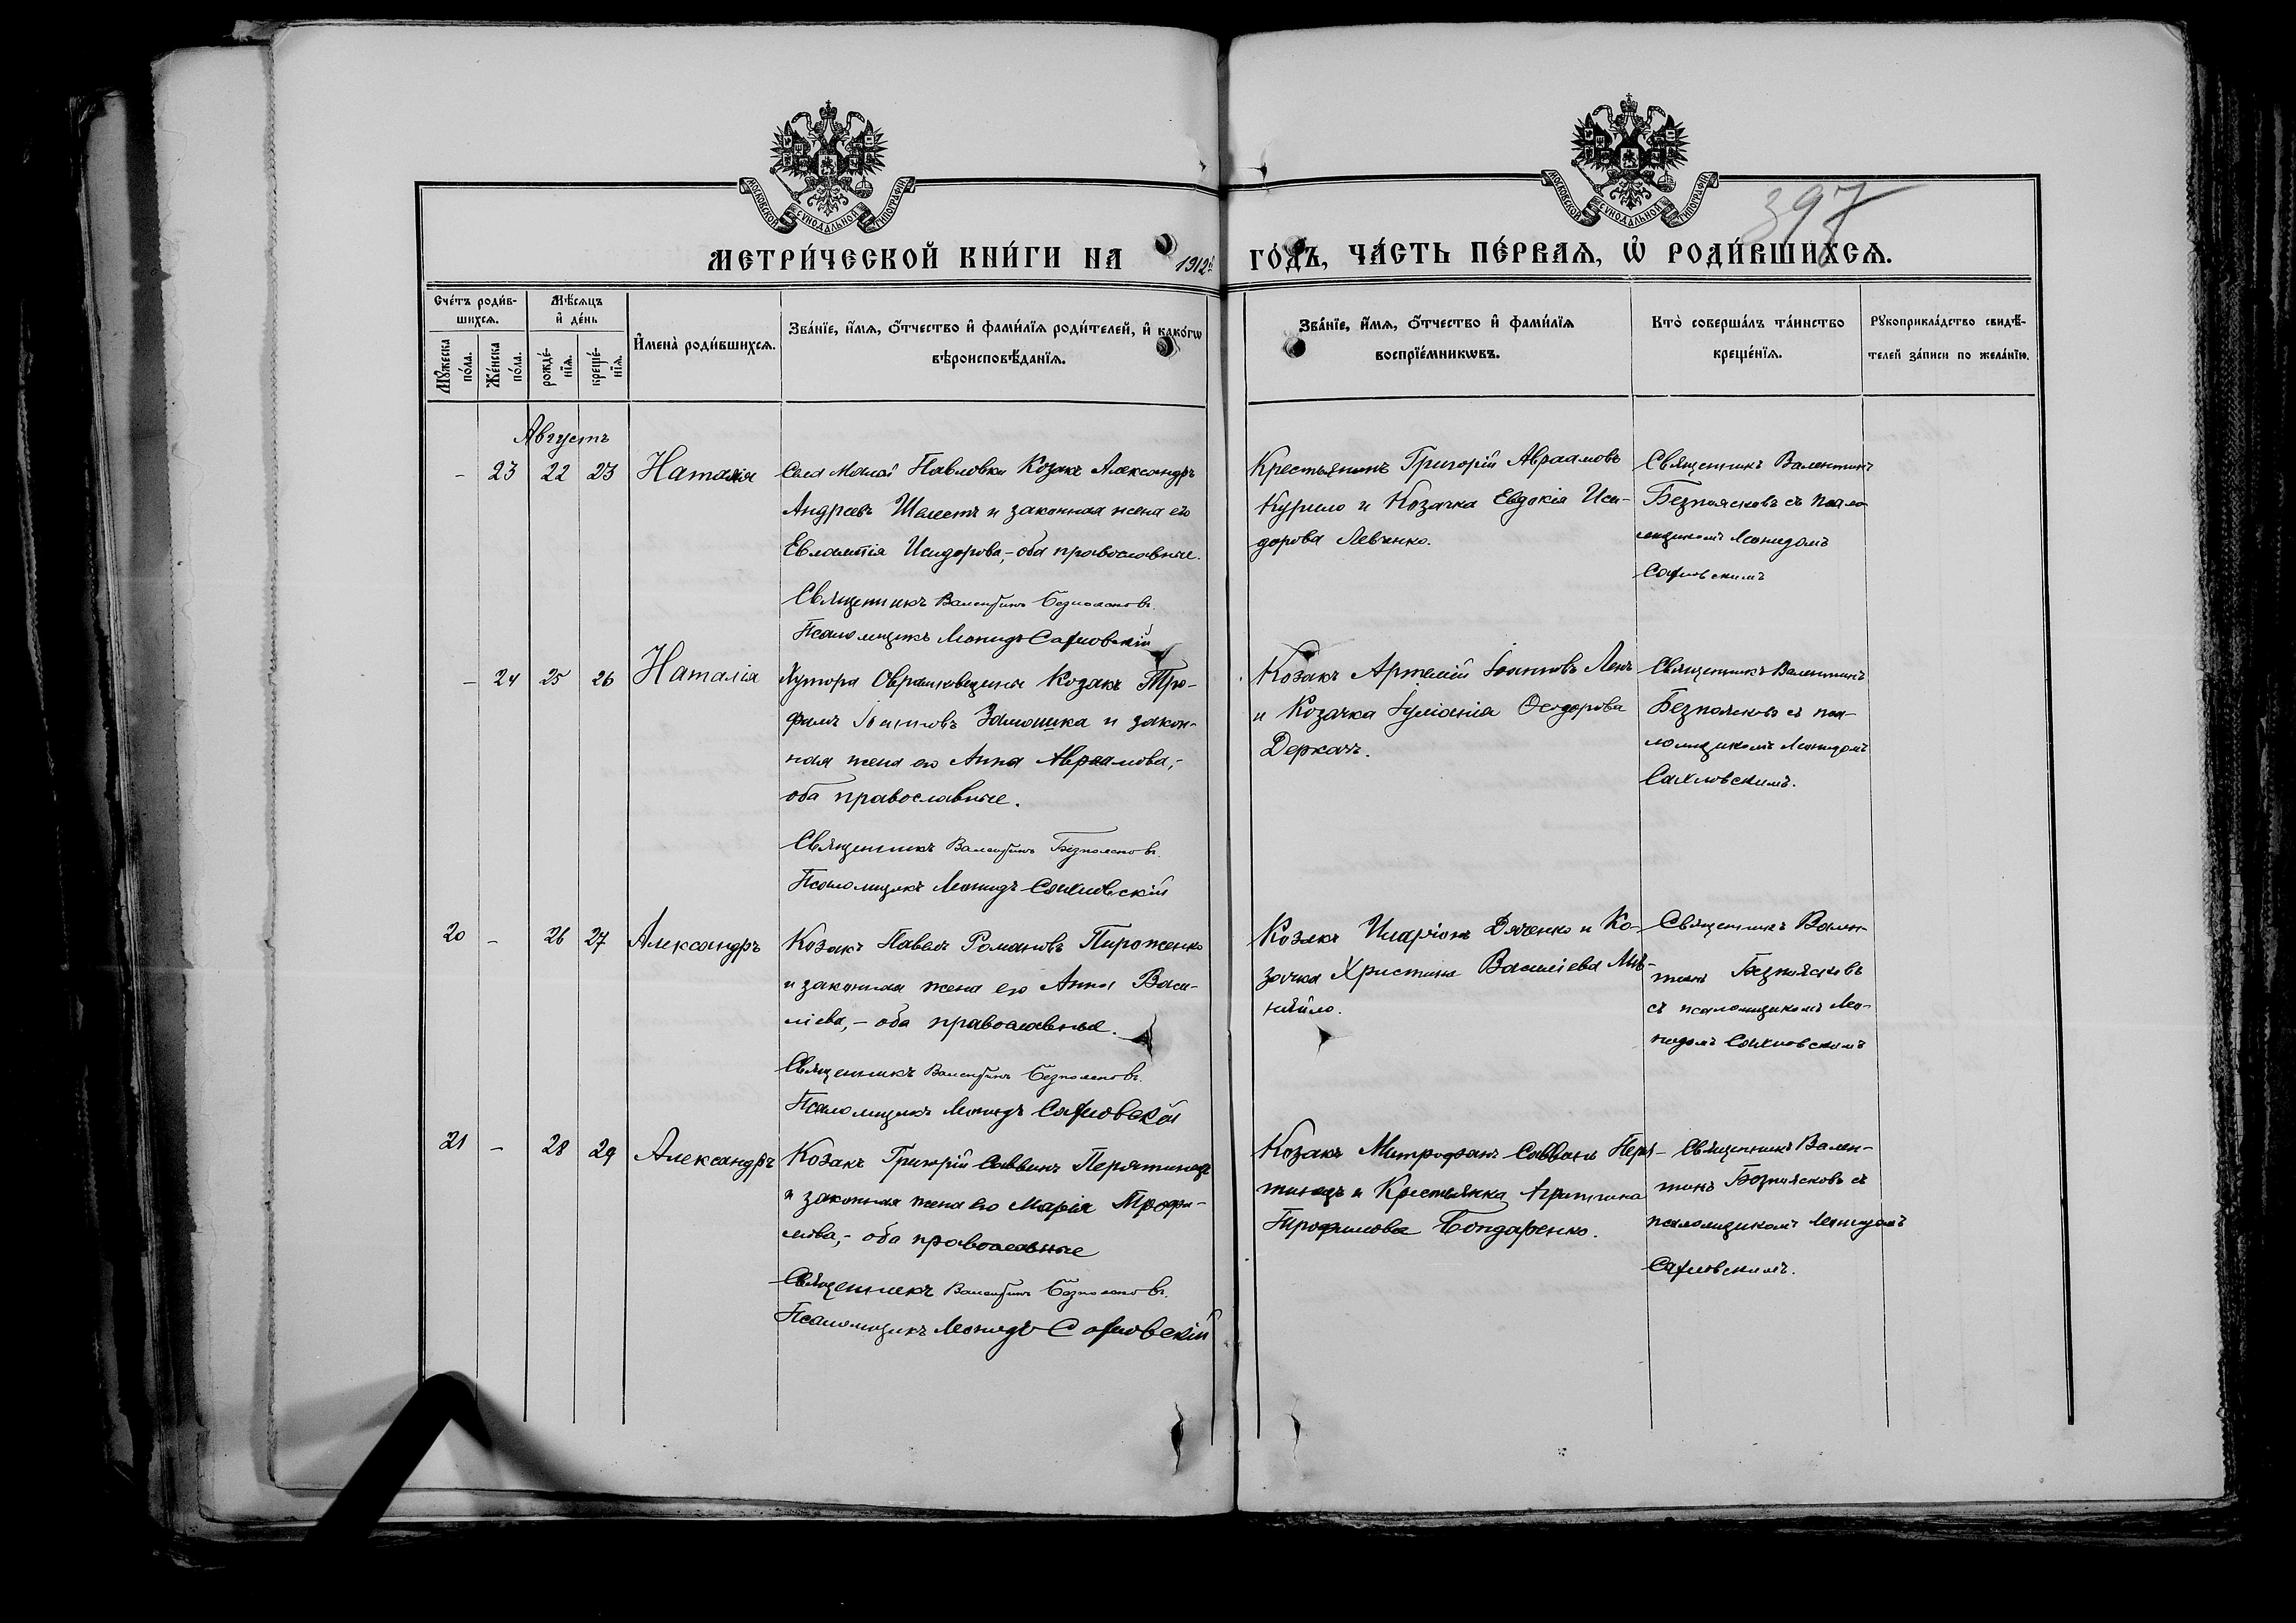 МОСКОВСКОЙ СУНОДАЛЬНОЙ ТИПОГРАФІИ
МОСКОВСКОЙ СУНОДАЛЬНОЙ ТИПОГРАФІИ
397
МЕТРИ́ЧЕСКОЙ КНИ́ГИ НА 1912й ГО́ДЪ, ЧА́СТЬ ПЕ́РВАѦ, Ѡ҆ РОДИ́ВШИХСѦ.
Сче́тъ роди́в-
шихсѧ.
Мѣ́сѧцъ
и҆ де́нь
Мꙋ́жеска по́ла.
Же́нска по́ла.
рожде́-
нїѧ.
креще́-
нїѧ.
И҆мена̀ роди́вшихсѧ.
Зва́нїе, и҆́мѧ, ѻ҆́тчество и҆ фами́лїѧ роди́телей, и҆ како́гѡ
вѣроисповѣ́данїѧ.
Зва́нїе, и҆́мѧ, ѻ҆́тчество и҆ фами́лїѧ
воспрїе́мникѡвъ.
Кто̀ соверша́лъ та́инство
креще́нїѧ.
Рꙋкоприкла́дство свидѣ́-
телей за́писи по жела́нїю.
Августъ
- 23 22 23 Наталія
Села Малой Павловки Козакъ Александръ
Андреевъ Шелестъ и законная жена его
Евлампія Исидорова,- оба православные.
Священникъ Валентинъ Безпоясковъ.
Псаломщикъ Леонидъ
Крестьянинъ Григорій Авраамовъ
Курило и Козачка Евдокія Иси-
дорова Левченко.
Священникъ Валентинъ
Безпоясковъ съ псало-
мщикомъ Леонидомъ
- 24 25 26 Наталія
Хутора Козакъ Тро-
фимъ Іоанновъ Замошка и закон-
ная жена его Анна Авраамова,-
оба православные.
Священникъ Валентинъ Безпоясковъ.
Псаломщикъ Леонидъ
Козакъ Артемій Іоанновъ
и Козачка Іуліанія Ѳеодорова
Деркачъ.
Священникъ Валентинъ
Безпоясковъ съ пса-
ломщикомъ Леонидомъ
20 - 26 27 Александръ
Козакъ Павелъ Романовъ Пироженко
и законная жена его Анна Васи-
ліева,- оба православные.
Священникъ Валентинъ Безпоясковъ.
Псаломщикъ Леонидъ
Козакъ Иларіонъ Дяченко и Ко-
зачка Христина Василіева
Священникъ Вален-
тинъ Безпоясковъ
съ псаломщикомъ Лео-
нидомъ
21 - 28 29 Александръ
Козакъ Григорій Саввинъ Перятинецъ
и законная жена его Марія Трофи-
мова,- оба православные
Священникъ Валентинъ Безпоясковъ.
Псаломщикъ Леонидъ
Козакъ Митрофанъ Саввинъ Перя-
тинецъ и Крестьянка Агрипина
Трофимова Бондаренко.
Священникъ Вален-
тинъ Безпоясковъ съ
псаломщикомъ Леонидомъ